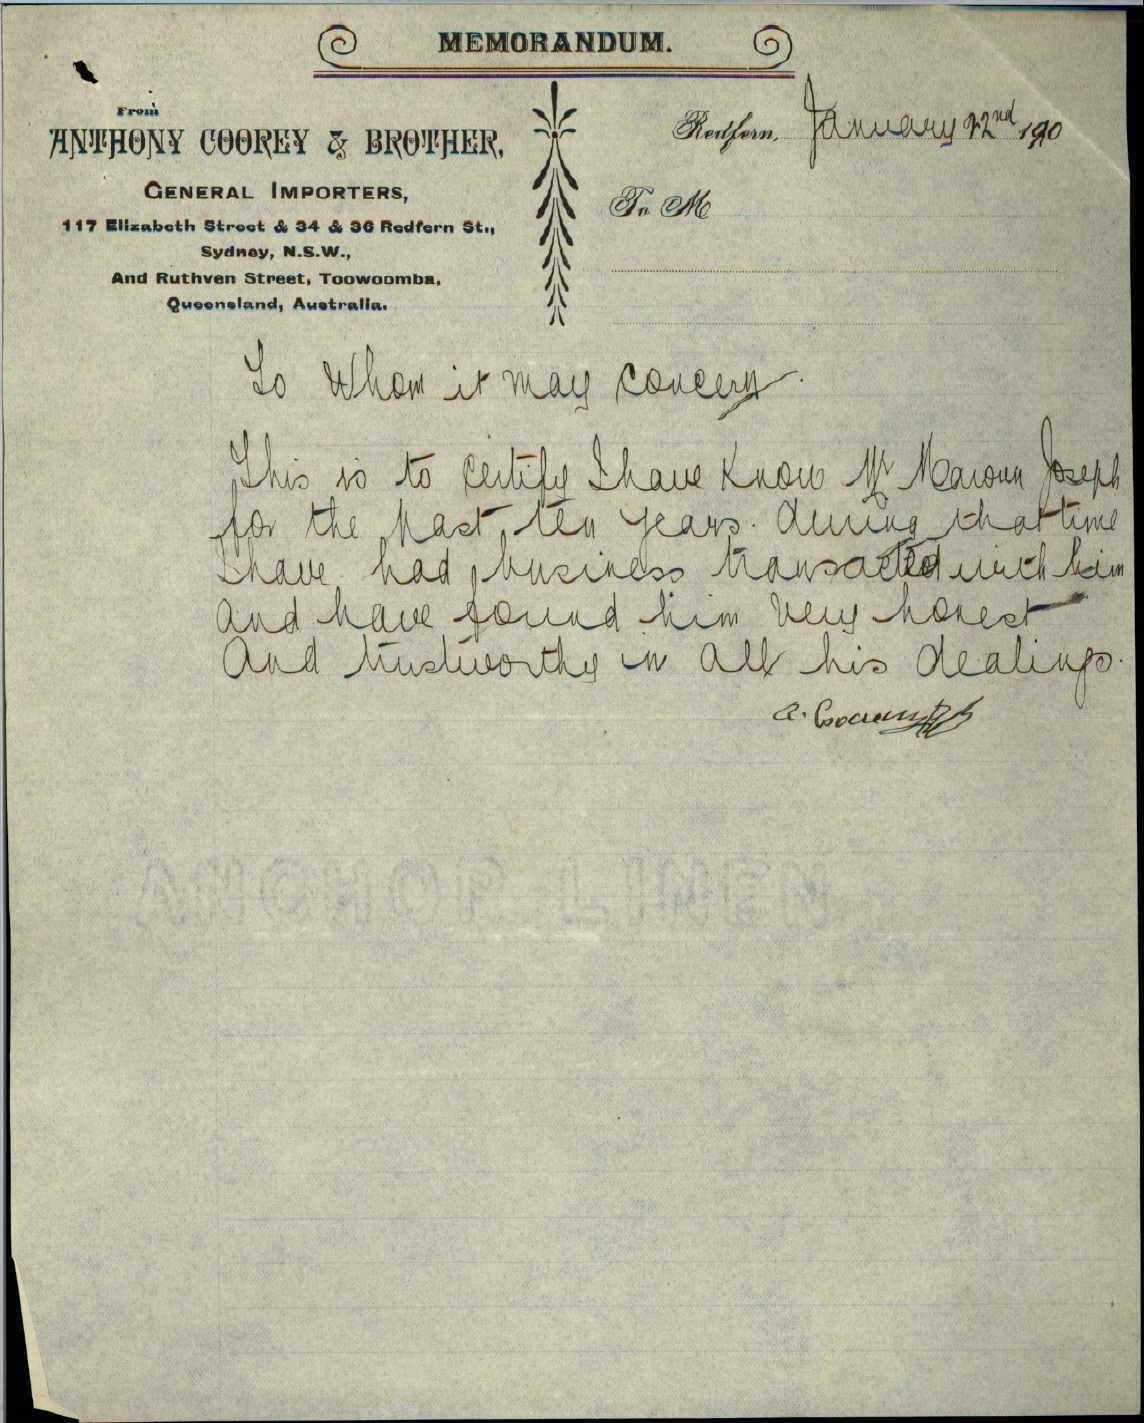 MEMORANDUM.
From
ANTHONY COOREY & BROTHER,
GENERAL IMPORTERS,
117 Elizabeth Street & 34 & 36 Redfern St.,
Sydney, N.S.W.,
And Ruthven Street, Toowoomba,
Queensland, Australia.
Redfern, January 22nd 190
To M
To Whom it may concern.
This is to certify I have Know Mr Maroun Joseph
for the past ten years. during that time
I have had business transacted with him
and have found him very honest
And trustworthy in all his dealings.
A.
ANCHOR LINEN